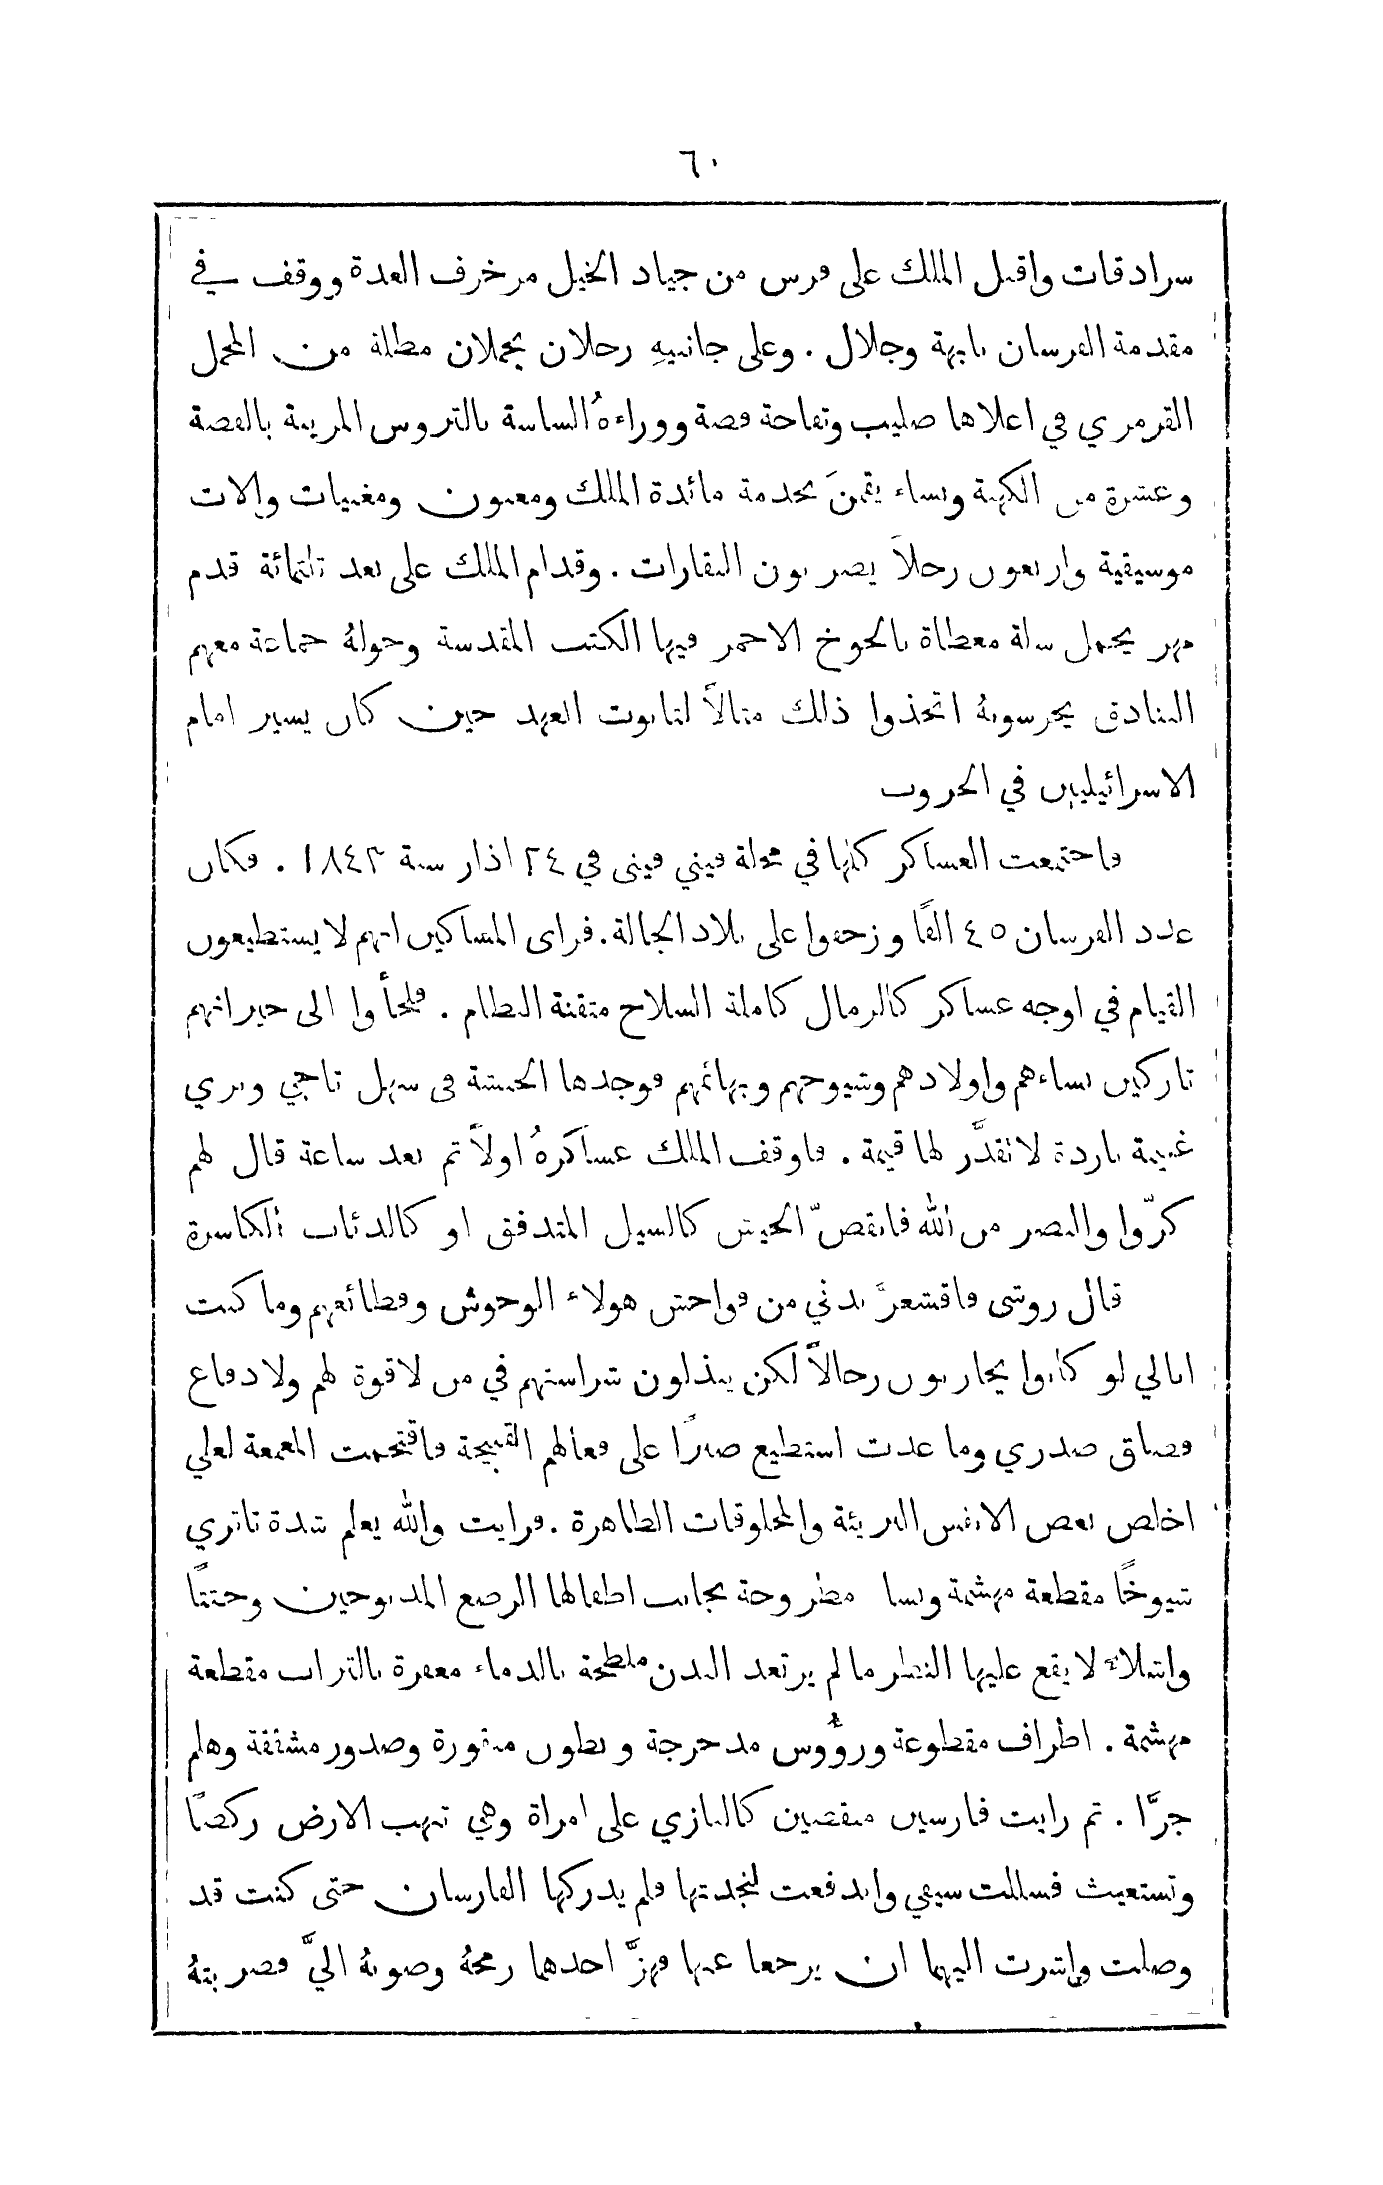 ٦٠
سرادقات واقبل الملك على فرس من جياد الخيل مزخرف العدة ووقف في
مقدمة الفرسان بابهة وجلال . وعلى جانبيهِ رجلان يحملان مظلة من المخمل
القرمزي في اعلاها صليب وتفاحة فضة ووراءهُ الساسة بالتروس المزينة بالفضة
وعشرة من الكهنة ونساء يقمنَ بخدمة مائدة الملك ومغنون ومغنيات وآلات
موسيقية واربعون رجلاً يضربون النقارات . وقدام الملك على بعد ثلثمائة قدم
مهر يحمل سلة مغطاة بالجوخ الاحمر فيها الكتب المقدسة وحولهُ جماعة معهم
البنادق يحرسونهُ اتخذوا ذلك مثالاً لتابوت العهد حين كان يسير امام
الاسرائيليين في الحروب
فاجتمعت العساكر كلها في محلة فيني فيني في ٢٤ اذار سنة ١٨٤٣ . فكان
عدد الفرسان ٤٥ الفًا وزحفوا على بلاد الجالة . فراى المساكين انهم لا يستطيعون
القيام في اوجه عساكر كالرمال كاملة السلاح متقنة النظام . فلجأوا الى جيرانهم
تاركين نساءهم واولادهم وشيوخهم وبهائمهم فوجدها الحبشة في سهل تاجي وبري
غنيمة باردة لا تقدَّر لها قيمة . فاوقف الملك عساكرهُ اولاً ثم بعد ساعة قال لهم
كرّوا والنصر من الله فانقضّ الجيش كالسيل المتدفق او كالذئاب الكاسرة
قال روشى فاقشعرَّ بدني من فواحش هولاء الوحوش وفظائعهم وما كنت
ابالي لو كانوا يحاربون رجالاً لكن يبذلون شراستهم في من لا قوة لهم ولا دفاع
فضاق صدري وما عدت استطيع صبرًا على فعالهم القبيحة فاقتحمت المعمعة لعلي
اخلص بعض الانفس البريئة والمخلوقات الطاهرة . فرايت والله يعلم شدة تاثري
شيوخًا مقطعة مهشمة ونسا مطروحة بجانب اطفالها الرضع المذبوحين وجثثًا
واشلاءً لا يقع عليها النظر ما لم يرتعد البدن ملطخة بالدماء معفرة بالتراب مقطعة
مهشمة . اطراف مقطوعة ورؤُوس مدحرجة وبطون مبقورة وصدور مشققة وهلم
جرًّا . ثم رايت فارسين منقضين كالبازي على امراة وهي تنهب الارض ركضًا
وتستغيث فسللت سيفي واندفعت لنجدتها فلم يدركها الفارسان حتى كنت قد
وصلت واشرت اليهما ان يرجعا عنها فهزَّ احدهما رمحهُ وصوبهُ اليَّ فضربتهُ